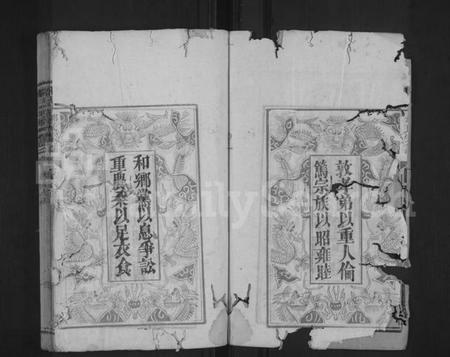 敦孝弟以重人倫
篤宗族以昭雍睦
和鄉黨以息爭訟
重農桑以足衣食
FamilySearch